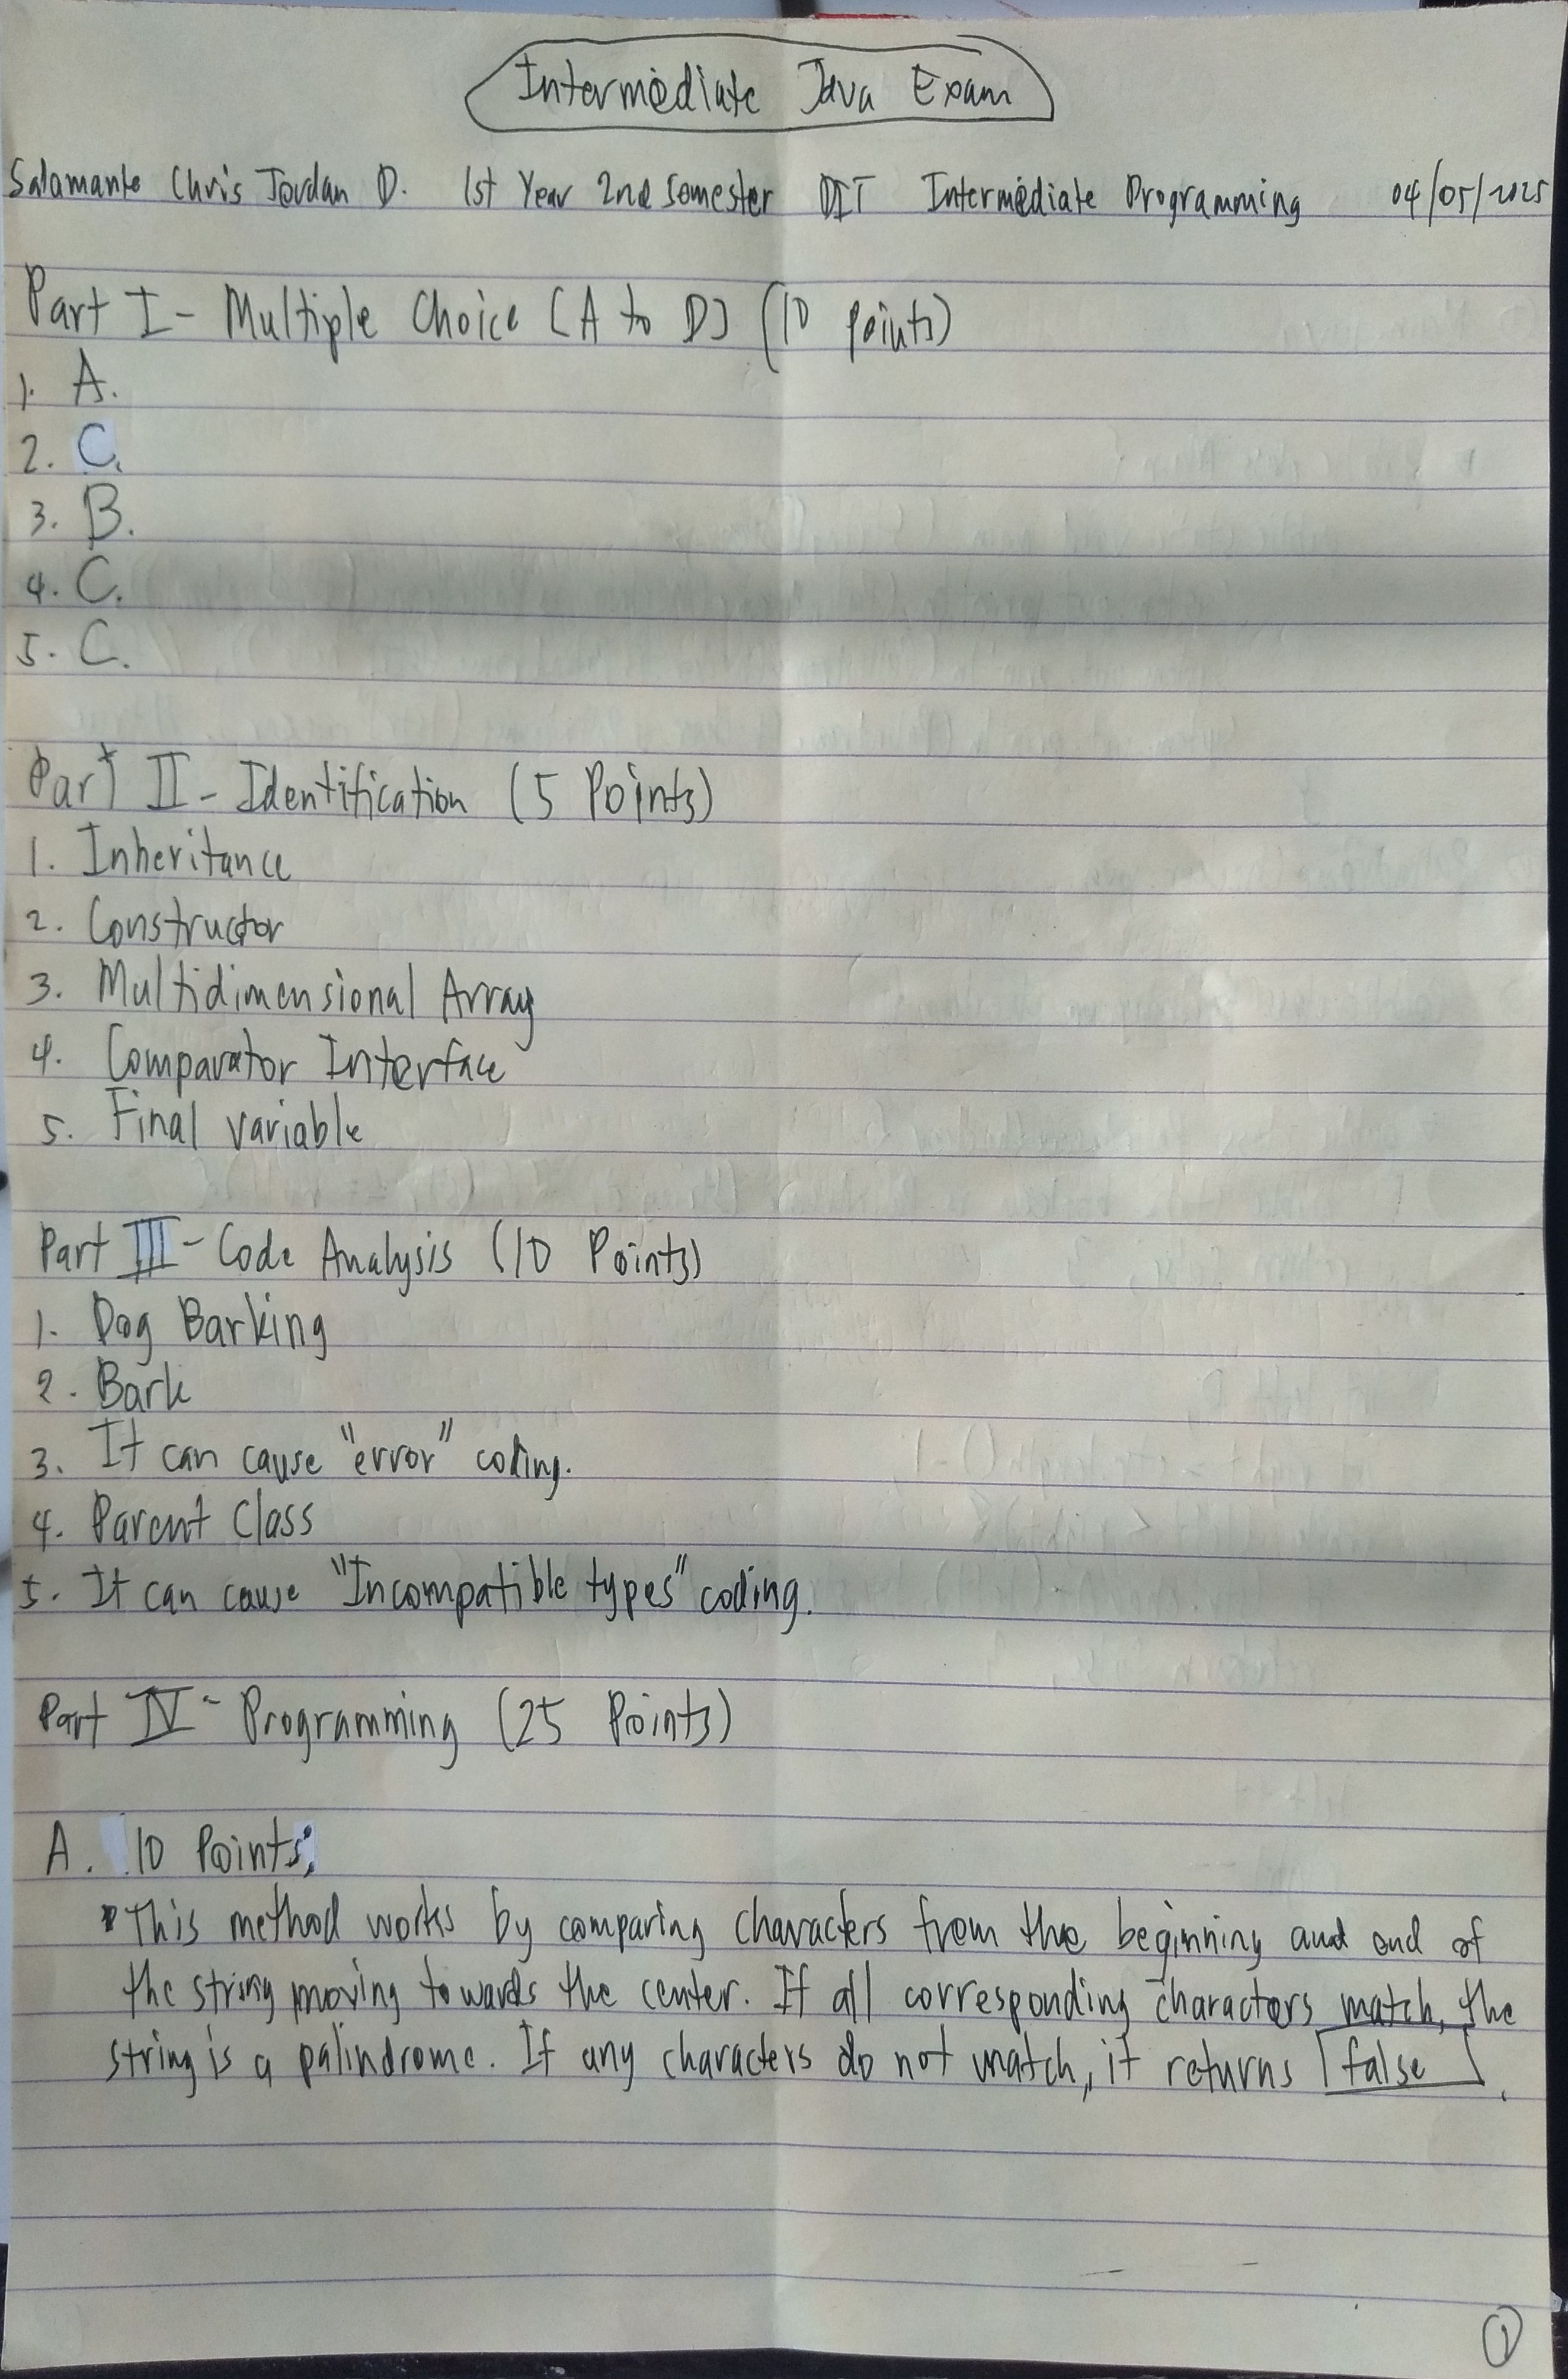 Intermediate Java Exam
Salamante Chris Jordan D. 1st Year 2nd Semester DIT Intermediate Programming 04/05/2025
Part I - Multiple Choice [A to D] (10 points)
1. A.
2. C.
3. B.
4. C.
5. C.
Part II - Identification (5 Points)
1. Inheritance
2. Constructor
3. Multidimensional Array
4. Comparator Interface
5. Final variable
Part III - Code Analysis (10 Points)
1. Dog Barking
2. Bark
3. It can cause "error" coding.
4. Parent Class
5. It can cause "Incompatible types" coding.
Part IV - Programming (25 Points)
A. 10 Points:
This method works by comparing characters from the beginning and end of
the string moving towards the center. If all corresponding characters match, the
string is a palindrome. If any characters do not match, it returns false.
1